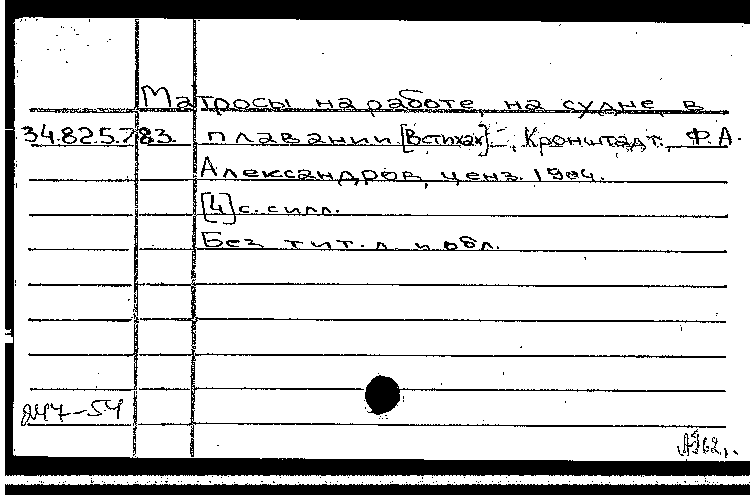 Матросы на работе, на судне, в
34.82.5.783. плавании [в стихах]. – Кронштадт, Ф.А.
Александров, ценз. 1904.
[4] с. силл.
Без тит. л. и обл.
247-54